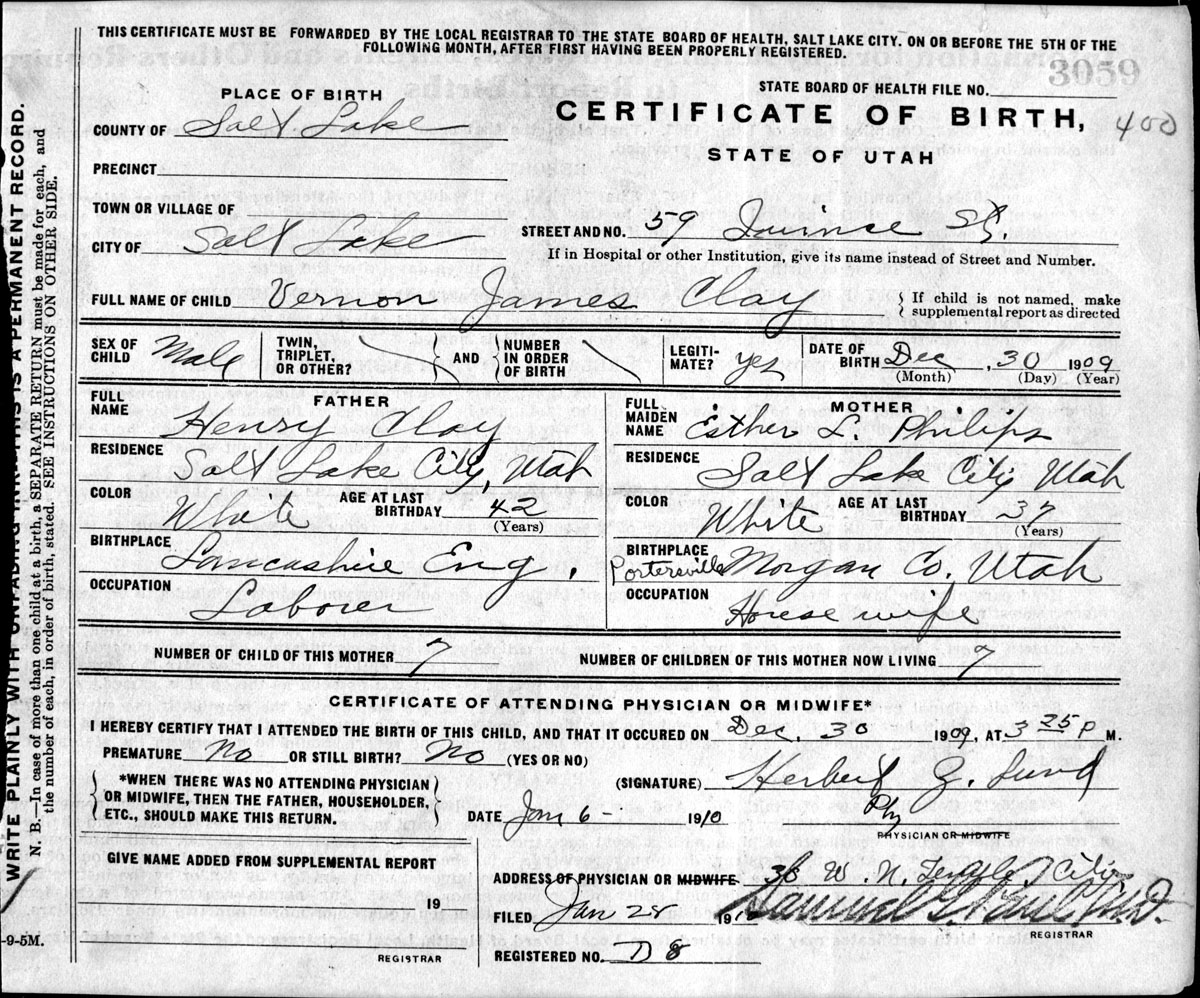 THIS CERTIFICATE MUST BE FORWARDED BY THE LOCAL REGISTRAR TO THE STATE BOARD OF HEALTH, SALT LAKE CITY. ON OR BEFORE THE 5TH OF THE
FOLLOWING MONTH, AFTER FIRST HAVING BEEN PROPERLY REGISTERED.
3059
STATE BOARD OF HEALTH FILE NO.
PLACE OF BIRTH
CERTIFICATE OF BIRTH, 400
STATE OF UTAH
COUNTY OF Salt Lake
PRECINCT
TOWN OR VILLAGE OF
CITY OF Salt Lake
STREET AND NO. 59 Quince St.
If in Hospital or other Institution, give its name instead of Street and Number.
FULL NAME OF CHILD Vernon James Clay
If child is not named, make
supplemental report as directed
SEX OF CHILD Male
TWIN, TRIPLET, OR OTHER? AND NUMBER IN ORDER OF BIRTH
LEGITIMATE? yes
DATE OF BIRTH Dec, 30 1909
(Month) (Day) (Year)
FATHER
FULL NAME Henry Clay
RESIDENCE Salt Lake City, Utah
COLOR White AGE AT LAST BIRTHDAY 42
(Years)
BIRTHPLACE Lancashire Eng.
OCCUPATION Laborer
MOTHER
FULL MAIDEN NAME Esther L. Philips
RESIDENCE Salt Lake City Utah
COLOR White AGE AT LAST BIRTHDAY 37
(Years)
BIRTHPLACE Portersville Morgan Co., Utah
OCCUPATION House wife
NUMBER OF CHILD OF THIS MOTHER 7 NUMBER OF CHILDREN OF THIS MOTHER NOW LIVING
CERTIFICATE OF ATTENDING PHYSICIAN OR MIDWIFE*
I HEREBY CERTIFY THAT I ATTENDED THE BIRTH OF THIS CHILD, AND THAT IT OCCURED ON Dec. 30 1909, AT 3 25 P M.
PREMATURE No OR STILL BIRTH? No (YES OR NO)
*WHEN THERE WAS NO ATTENDING PHYSICIAN
OR MIDWIFE, THEN THE FATHER, HOUSEHOLDER,
ETC., SHOULD MAKE THIS RETURN.
(SIGNATURE) Herbert Z. Lund
Phy
DATE Jan 6 - 1910
PHYSICIAN OR MIDWIFE
GIVE NAME ADDED FROM SUPPLEMENTAL REPORT
19
REGISTRAR
ADDRESS OF PHYSICIAN OR MIDWIFE W. N. Temple City
FILED Jan 28 191 Samuel G. Paul M.D.
REGISTRAR
REGISTERED NO. 8
WRITE PLAINLY WITH UNFADING INK—THIS IS A PERMANENT RECORD.
N. B.—In case of more than one child at a birth, a SEPARATE RETURN must be made for each, and
the number of each, in order of birth, stated. SEE INSTRUCTIONS ON OTHER SIDE.
-9-5M.